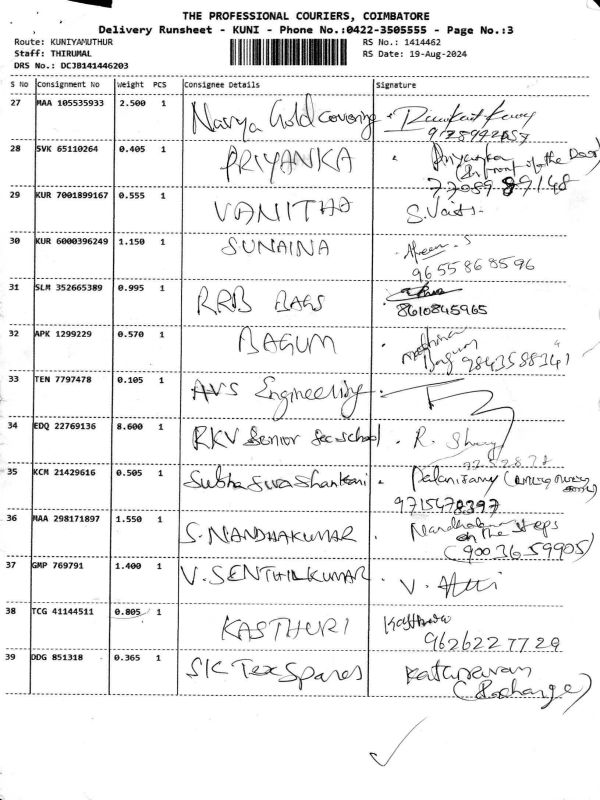 THE PROFESSIONAL COURIERS, COIMBATORE
Delivery Runsheet - KUNI - Phone No.:0422-3505555 - Page No.:3
Route: KUNIYAMUTHUR RS No.: 1414462
Staff: THIRUMAL RS Date: 19-Aug-2024
DRS No.: DCJB141446203
S No Consignment No Weight PCS Consignee Details Signature
27 MAA 105535933 2.500 1 Navya Gold covering
28 SVK 65110264 0.405 1 PRIYANKA Priyanka
(In front of the Door)
77089 89148
29 KUR 7001899167 0.555 1 VANITHA
30 KUR 6000396249 1.150 1 SUNAINA
9655868596
31 SLM 352665389 0.995 1 RRB BAGS
8610845965
32 APK 1299229 0.570 1 BAGUM
Bagum 9843588341
33 TEN 7797478 0.105 1 AVS Engineering
34 EDQ 22769136 8.600 1 RKV Senior Sec school R.
35 KCM 21429616 0.505 1 Subha Siva Shankari
9715478397
36 MAA 298171897 1.550 1 S. NANDHAKUMAR Nandhakumar
on the steps
(90036 59905)
37 GMP 769791 1.400 1 V. SENTHIL KUMAR V.
38 TCG 41144511 0.805 1 KASTHURI
9626227729
39 DDG 851318 0.365 1 SK Tex Spares
(Exchange)